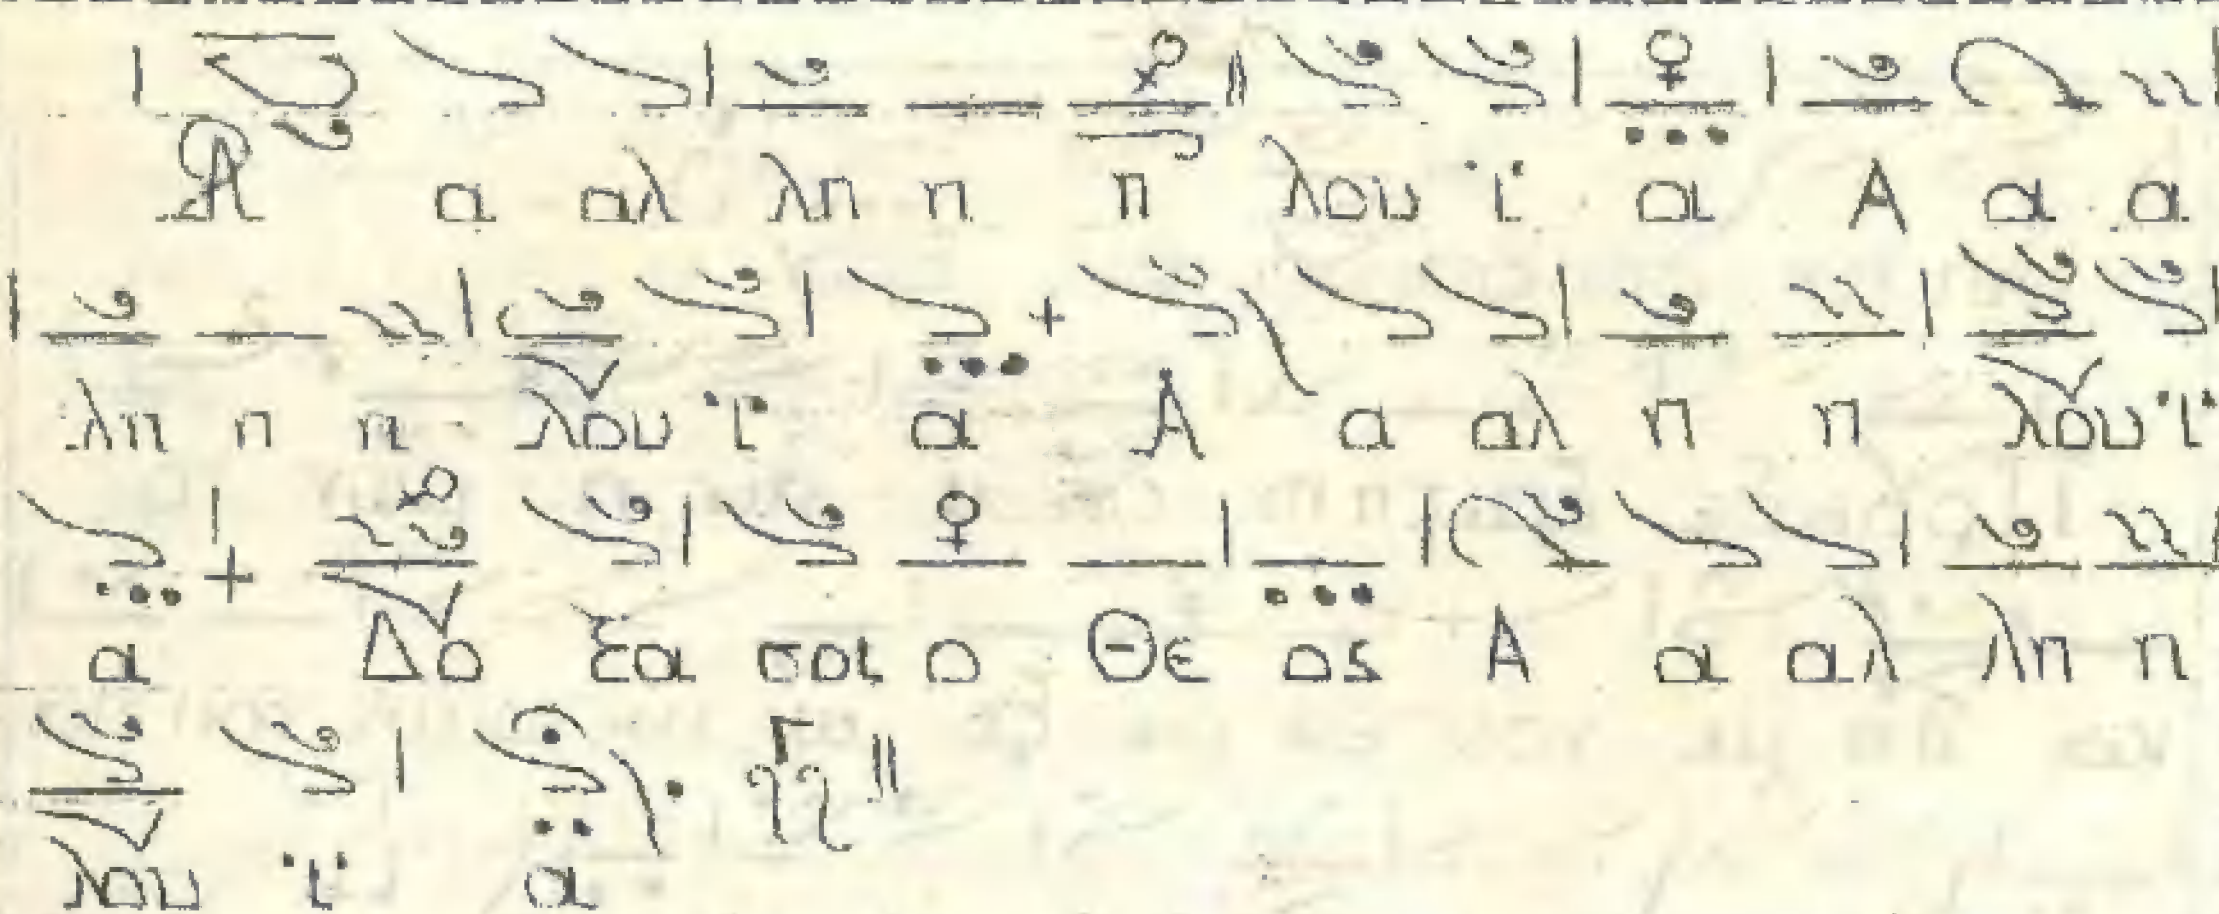 Α α αλ λη η η λου ϊ α Α α α
λη η η λου ϊ α Α α αλ η η λου ϊ
α Δο ξα σοι ο Θε ος Α α αλ λη η
λου ϊ α